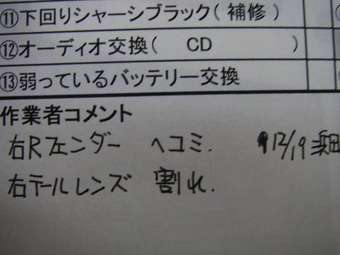 ⑪下回りシャーシブラック(補修)
⑫オーディオ交換( CD )
⑬弱っているバッテリー交換
作業者コメント
右Rフェンダー ヘコミ. 12/19
右テールレンズ 割れ.